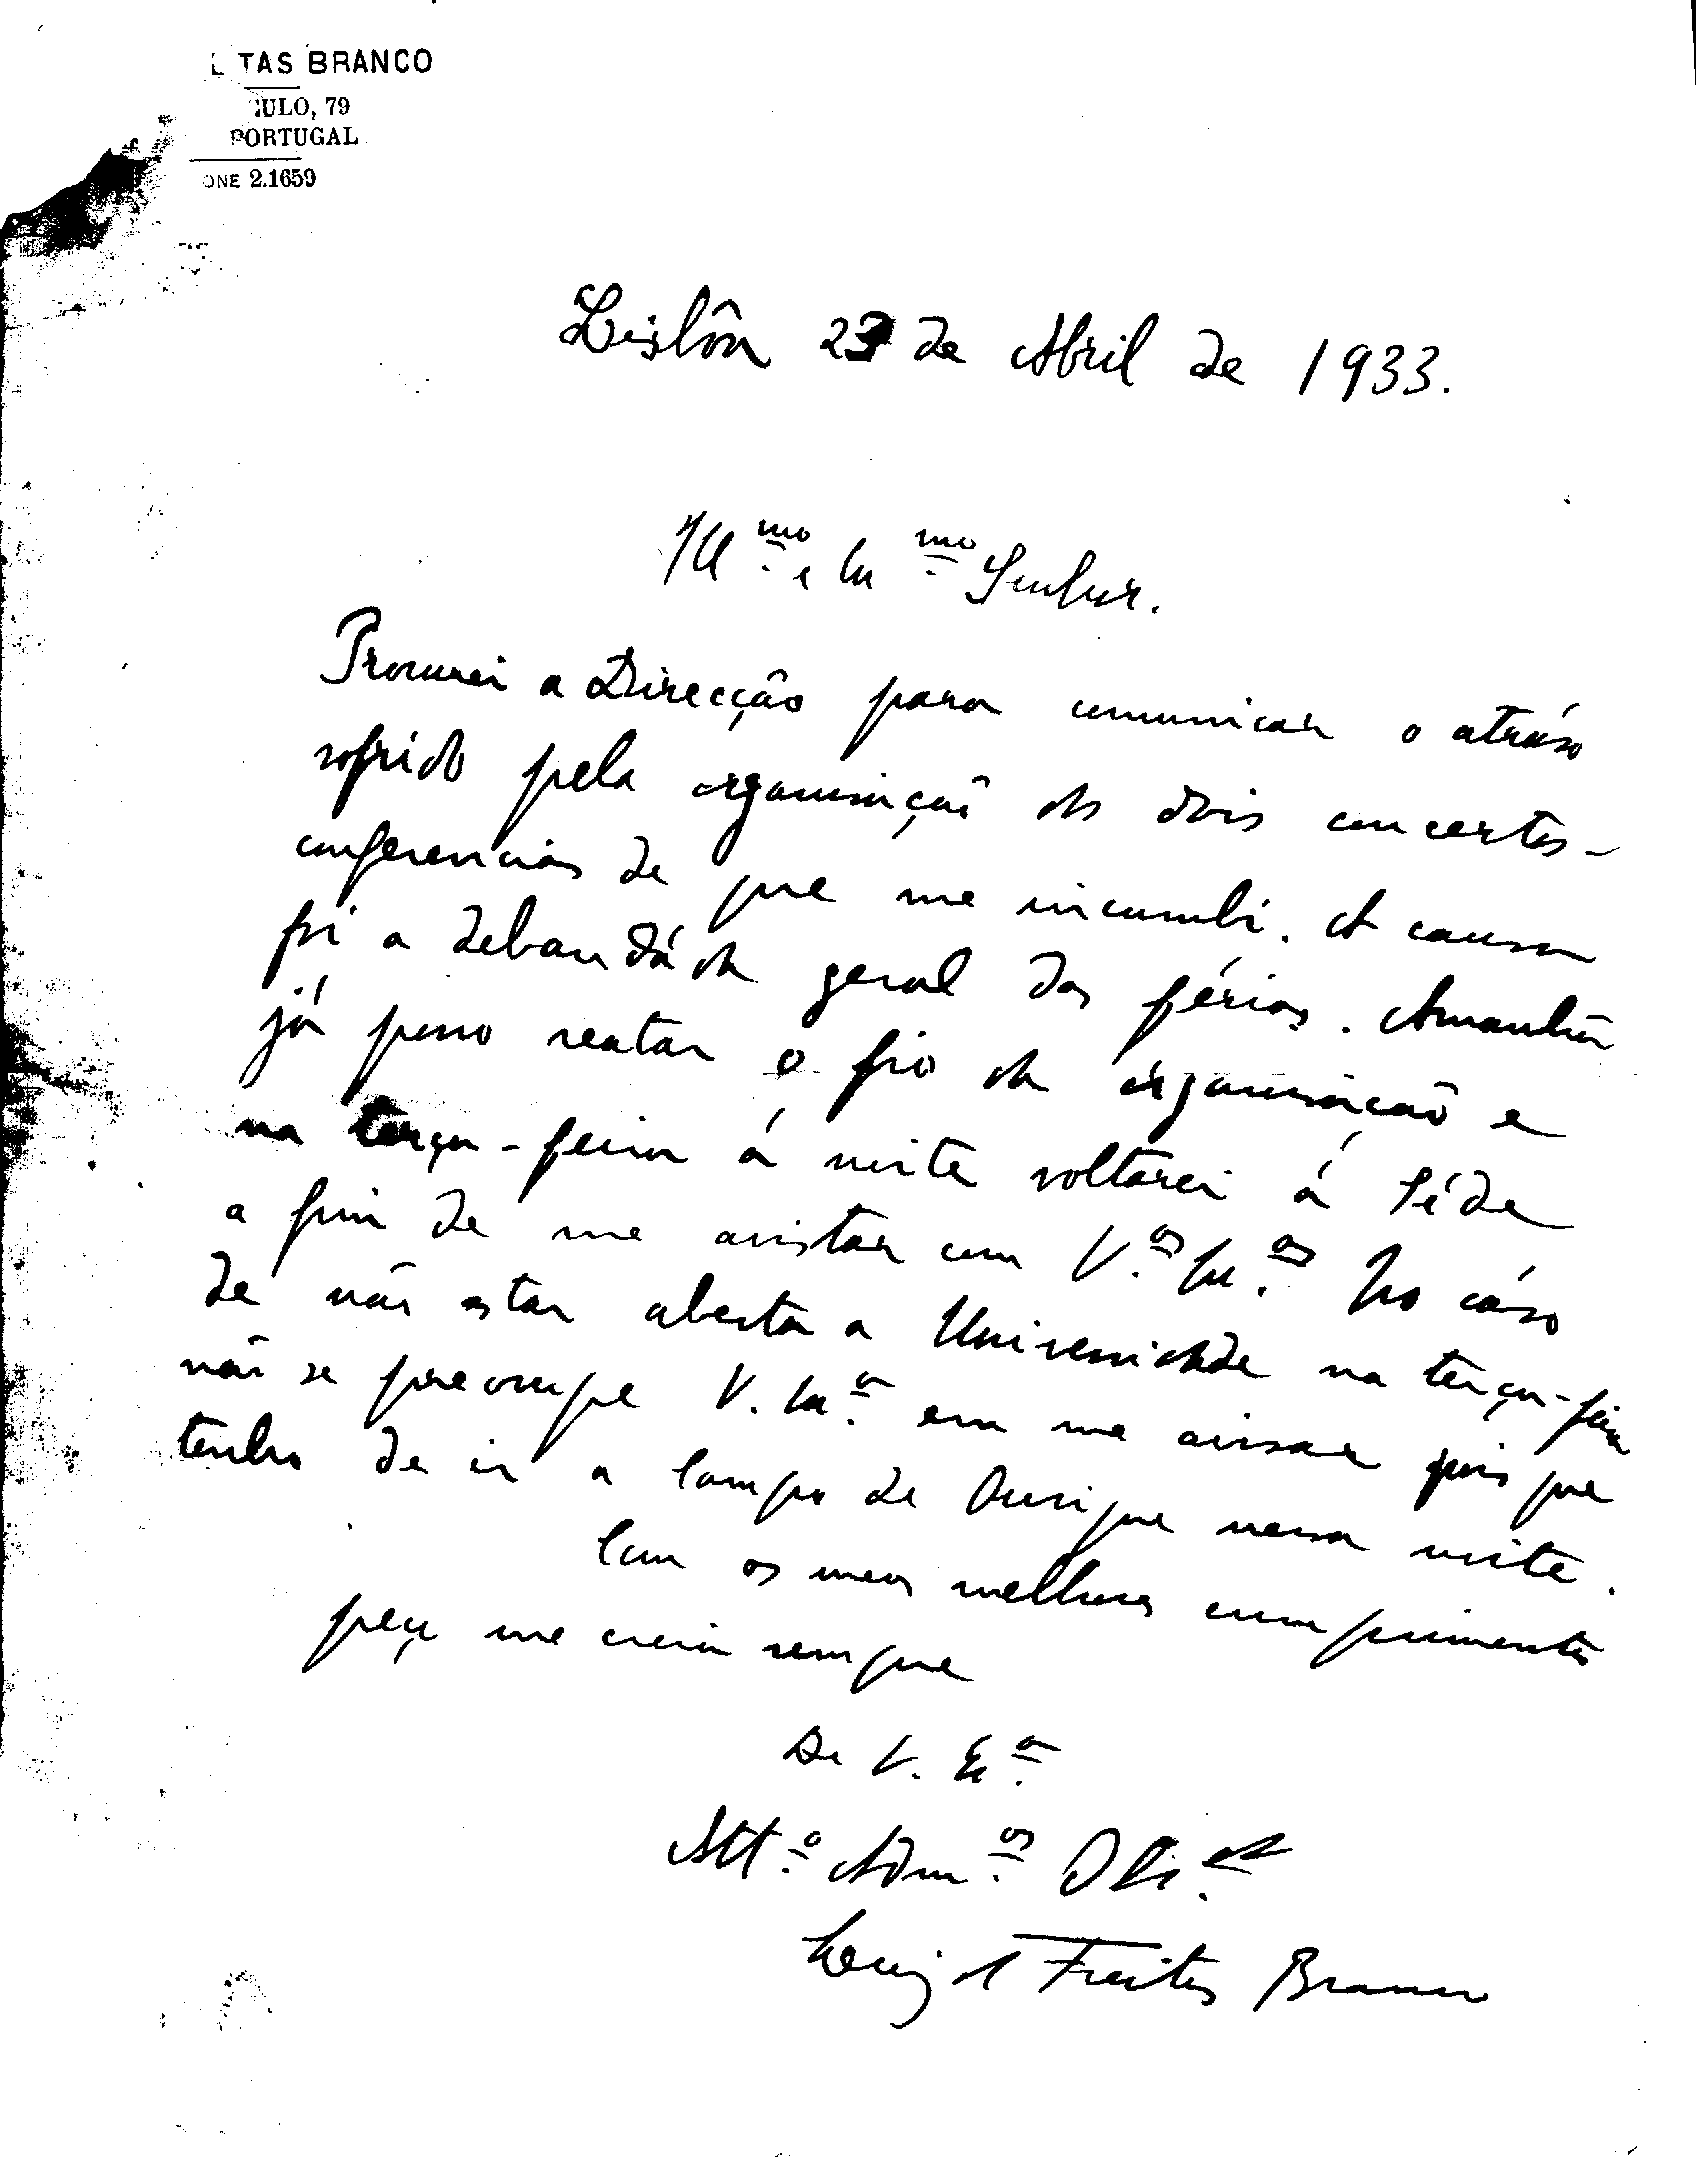 TAS BRANCO
ULO, 79
PORTUGAL
ONE 2.1659
Lisbôa 23 de Abril de 1933.
Ill.mo e Ex.mo Senhor.
Procurei a Direcção para comunicar o atráso
sofrido pela organisação dos dois concertos-
conferencias de que me incumbi. A causa
foi a debandáda geral das férias. Amanhã
já posso reatar o fio da organisação e
na terça-feira á noite voltarei á séde
a fim de me avistar com V.as Ex.as No cáso
de não estar aberta a Universidade na terça-feira
não se preocupe V. Ex.a em me avisar pois que
tenho de ir a Campo de Ourique nessa noite.
Com os meus melhores cumprimentos
peço me creia sempre
De V. Ex.a
Att.o Adm.or Obr.
Luiz de Freitas Branco